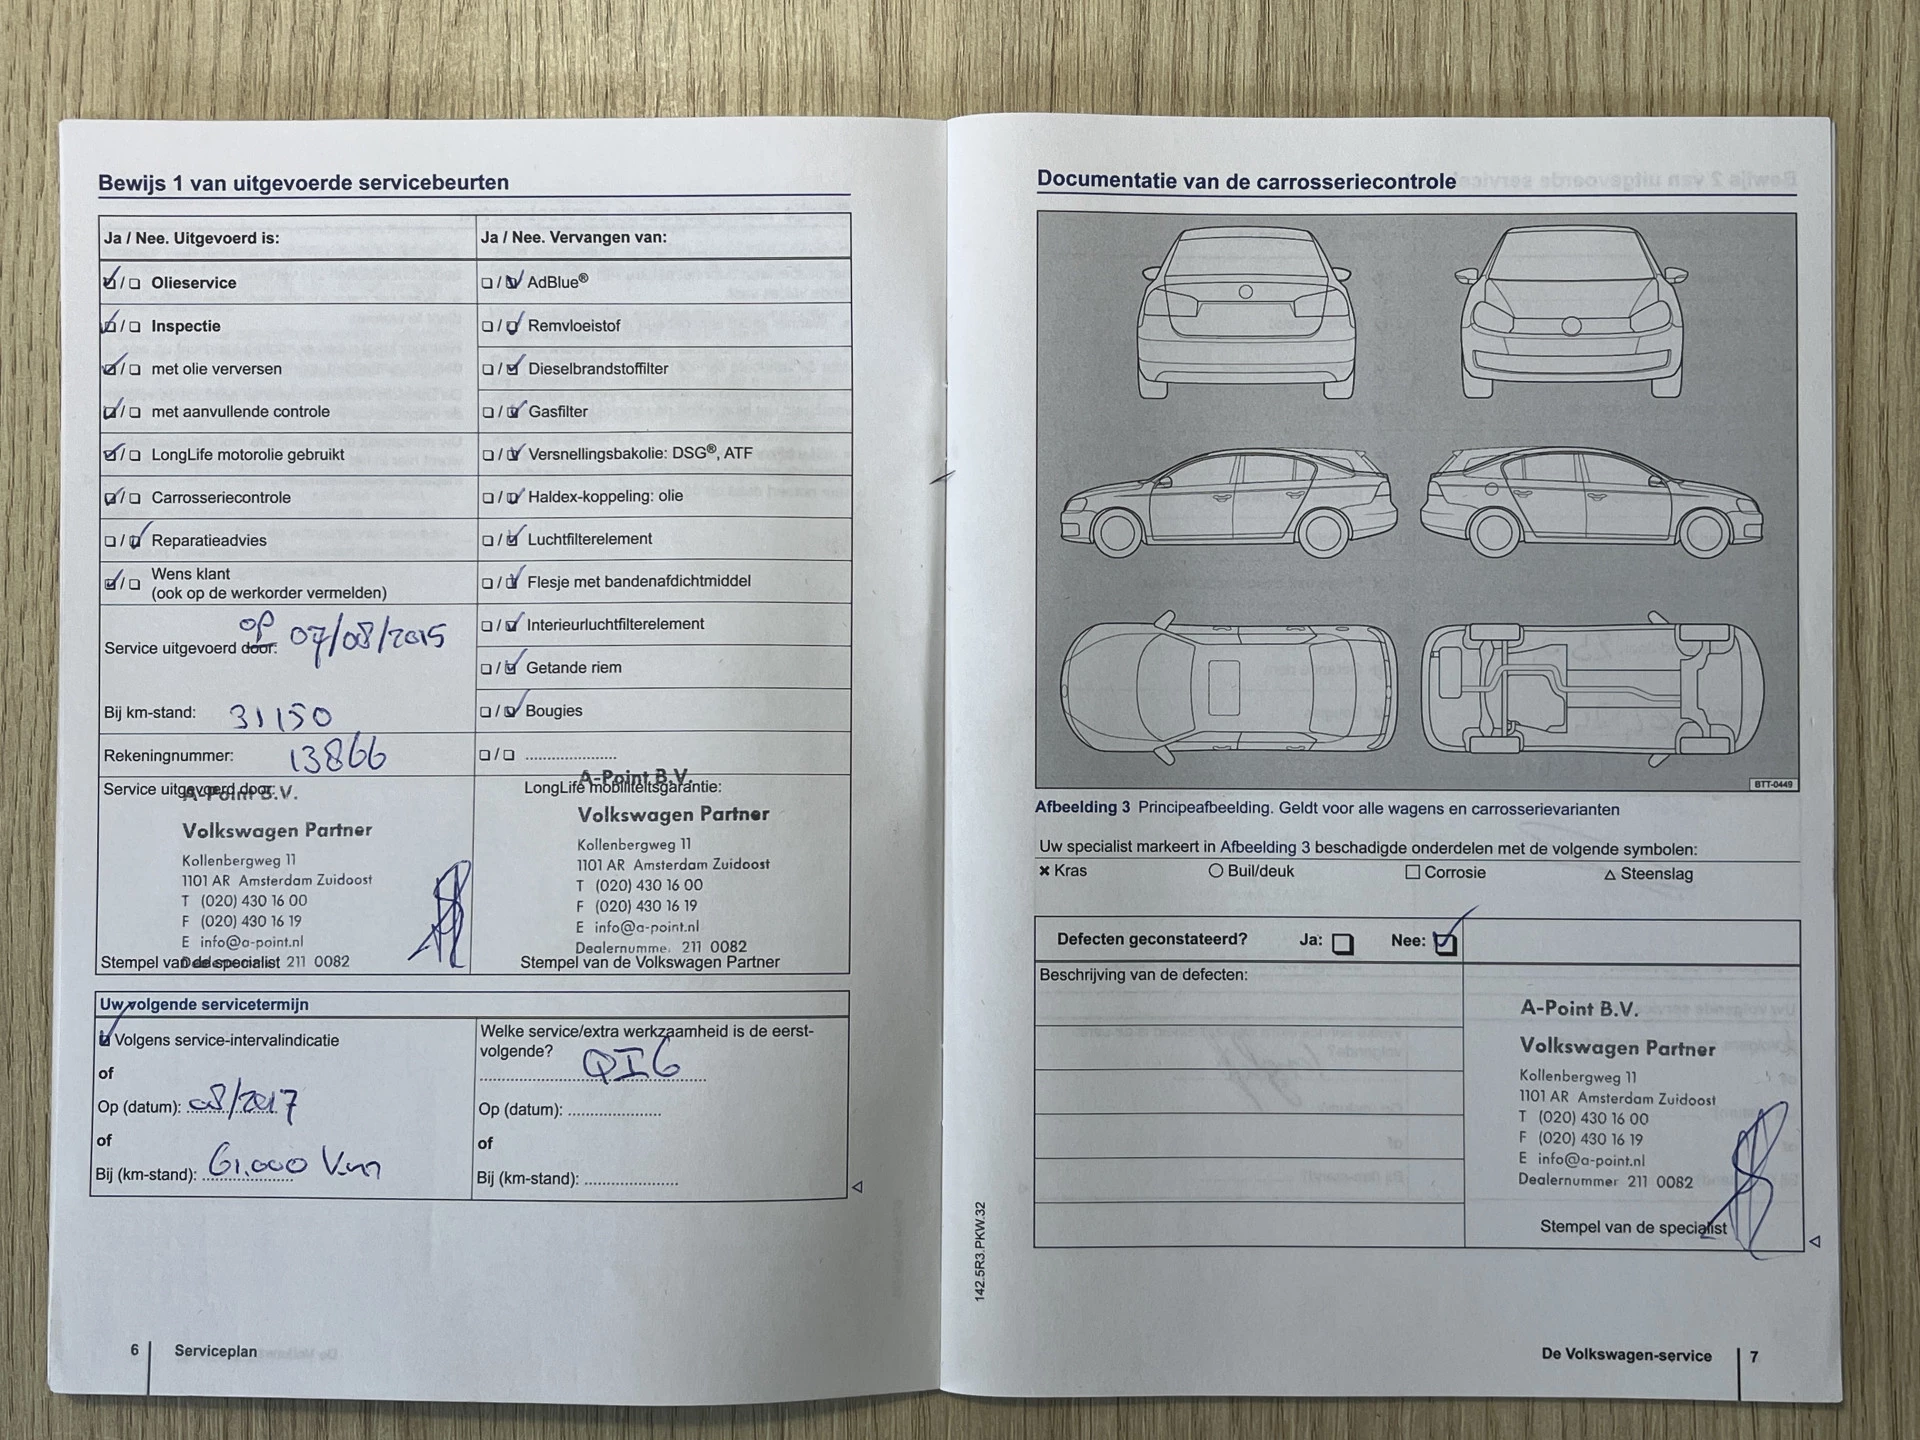 Bewijs 1 van uitgevoerde servicebeurten
Ja / Nee. Uitgevoerd is:
Olieservice
Inspectie
met olie verversen
met aanvullende controle
LongLife motorolie gebruikt
Carrosseriecontrole
Reparatieadvies
Wens klant
(ook op de werkorder vermelden)
op
Service uitgevoerd door: 07/08/2015
Bij km-stand: 31150
Rekeningnummer: 13866
Service uitgevoerd door:
A-Point B.V.
Volkswagen Partner
Kollenbergweg 11
1101 AR Amsterdam Zuidoost
T (020) 430 16 00
F (020) 430 16 19
E info@a-point.nl
Stempel van de specialist 211 0082
Ja / Nee. Vervangen van:
AdBlue®
Remvloeistof
Dieselbrandstoffilter
Gasfilter
Versnellingsbakolie: DSG®, ATF
Haldex-koppeling: olie
Luchtfilterelement
Flesje met bandenafdichtmiddel
Interieurluchtfilterelement
Getande riem
Bougies
A-Point B.V.
LongLife mobiliteitsgarantie:
Volkswagen Partner
Kollenbergweg 11
1101 AR Amsterdam Zuidoost
T (020) 430 16 00
F (020) 430 16 19
E info@a-point.nl
Dealernumme. 211 0082
Stempel van de Volkswagen Partner
Uw volgende servicetermijn
Volgens service-intervalindicatie
of
Op (datum): 08/2017
of
Bij (km-stand): 61.000 Km
Welke service/extra werkzaamheid is de eerst-
volgende?
QI6
Op (datum):
of
Bij (km-stand):
6 Serviceplan
Documentatie van de carrosseriecontrole
BTT-0449
Afbeelding 3 Principeafbeelding. Geldt voor alle wagens en carrosserievarianten
Uw specialist markeert in Afbeelding 3 beschadigde onderdelen met de volgende symbolen:
Kras Buil/deuk Corrosie Steenslag
Defecten geconstateerd? Ja: Nee:
Beschrijving van de defecten:
A-Point B.V.
Volkswagen Partner
Kollenbergweg 11
1101 AR Amsterdam Zuidoost
T (020) 430 16 00
F (020) 430 16 19
E info@a-point.nl
Dealernummer 211 0082
Stempel van de specialist
142.5R3.PKW.32
De Volkswagen-service 7